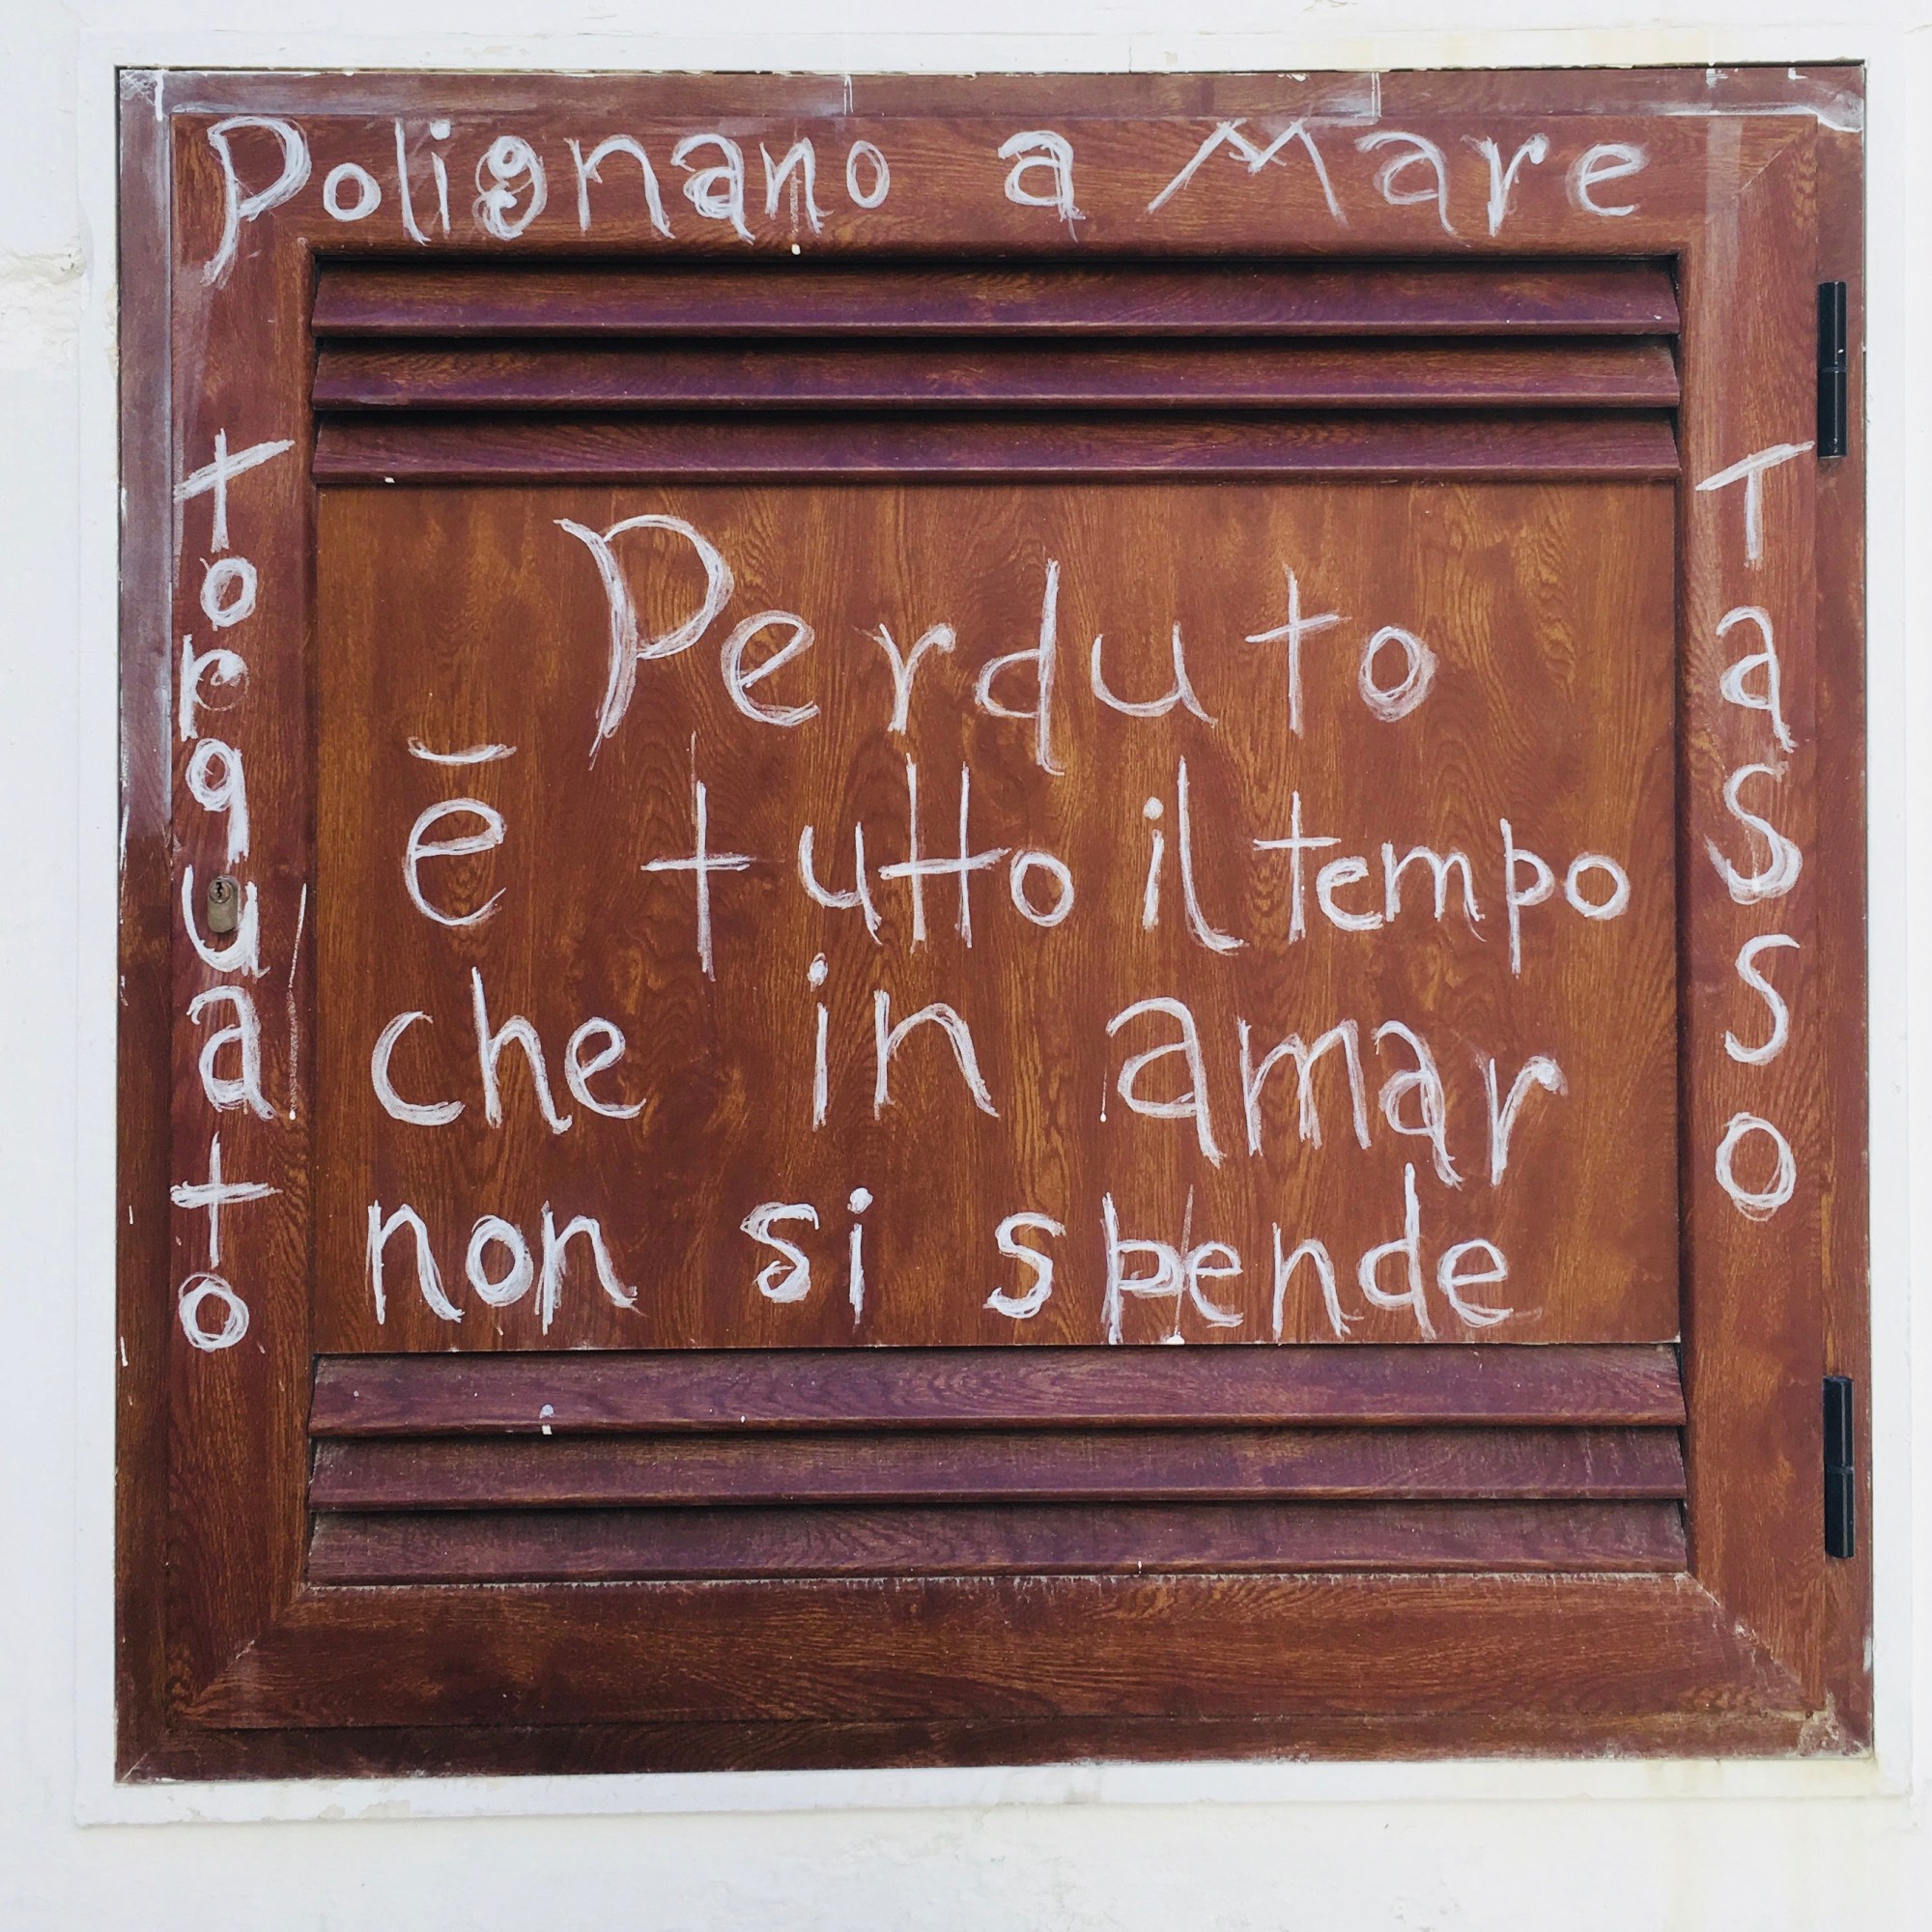 Polignano a Mare
torquato
Perduto
ē tutto il tempo
che in amar
non si spende
Tasso